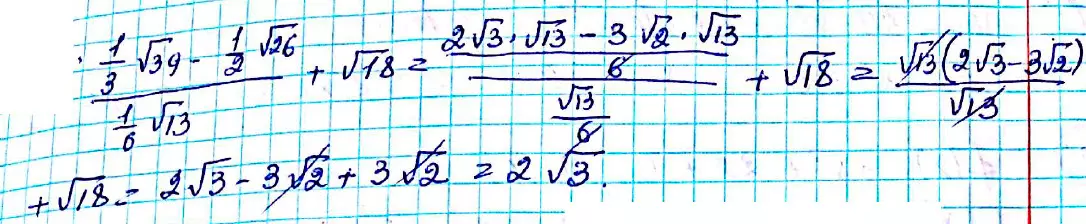 (1/3 √39 - 1/2 √26)/(1/6 √13) + √18 = ((2√3 · √13 - 3√2 · √13)/6)/(√13/6) + √18 = (√13(2√3 - 3√2))/√13
+ √18 = 2√3 - 3√2 + 3√2 = 2√3.